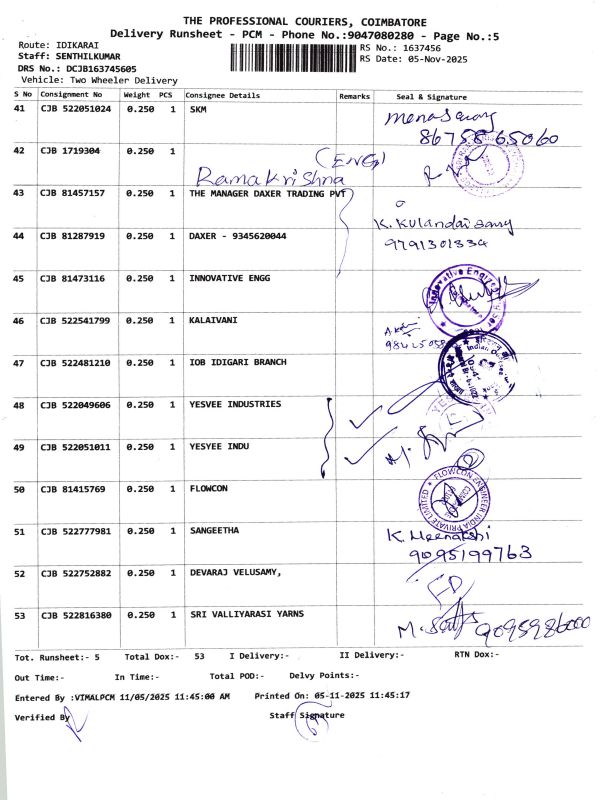 THE PROFESSIONAL COURIERS, COIMBATORE
Delivery Runsheet - PCM - Phone No.:9047080280 - Page No.:5
Route: IDIKARAI
RS No.: 1637456
Staff: SENTHILKUMAR
RS Date: 05-Nov-2025
DRS No.: DCJB163745605
Vehicle: Two Wheeler Delivery
S No Consignment No Weight PCS Consignee Details Remarks Seal & Signature
41 CJB 522051024 0.250 1 SKM
86758 65060
42 CJB 1719304 0.250 1
(ENG)
Ramakrishna
43 CJB 81457157 0.250 1 THE MANAGER DAXER TRADING PVT
K. Kulandaisamy
44 CJB 81287919 0.250 1 DAXER - 9345620044
9791301334
45 CJB 81473116 0.250 1 INNOVATIVE ENGG
Innovative Engine
46 CJB 522541799 0.250 1 KALAIVANI
47 CJB 522481210 0.250 1 IOB IDIGARI BRANCH
48 CJB 522049606 0.250 1 YESVEE INDUSTRIES
49 CJB 522051011 0.250 1 YESYEE INDU
50 CJB 81415769 0.250 1 FLOWCON
FLOWCON ENGINEER INDIA PRIVATE LIMITED
51 CJB 522777981 0.250 1 SANGEETHA
K. Meenakshi
9095199763
52 CJB 522752882 0.250 1 DEVARAJ VELUSAMY,
53 CJB 522816380 0.250 1 SRI VALLIYARASI YARNS
9095986000
Tot. Runsheet:- 5 Total Dox:- 53 I Delivery:- II Delivery:- RTN Dox:-
Out Time:- In Time:- Total POD:- Delvy Points:-
Entered By :VIMALPCM 11/05/2025 11:45:00 AM Printed On: 05-11-2025 11:45:17
Verified By
Staff Signature